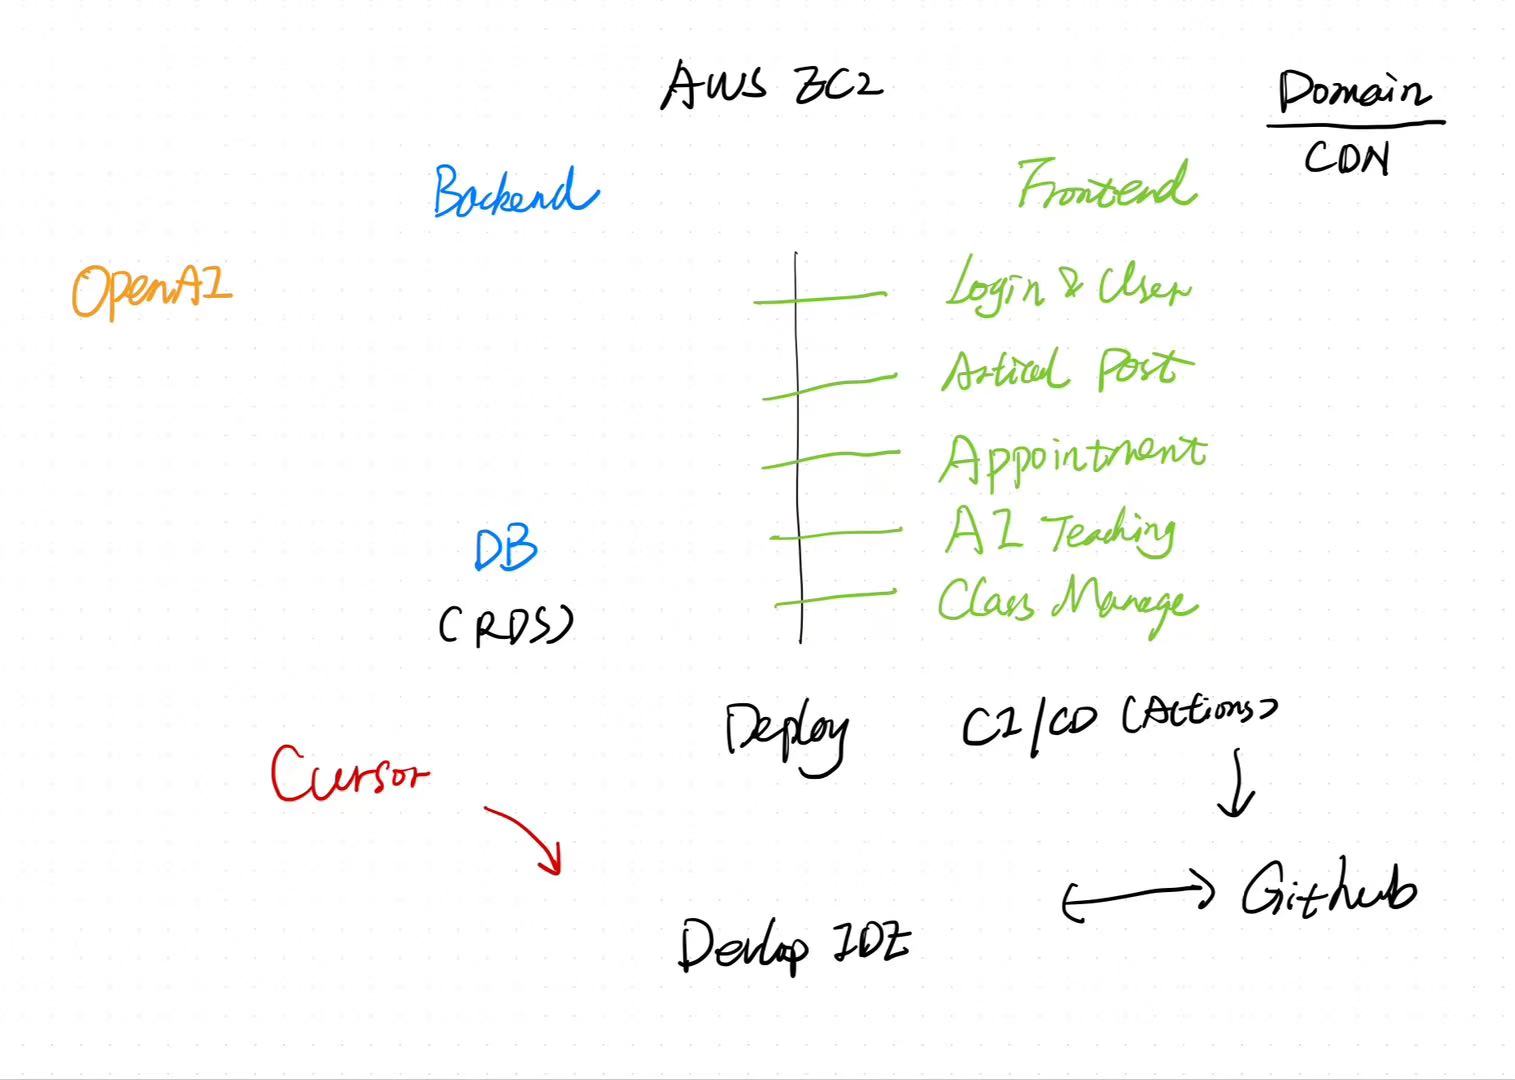 AWS EC2
Domain
CDN
Backend
Frontend
OpenAI
Login & User
Articel Post
Appointment
AI Teaching
DB
Class Manage
(RDS)
Deploy
CI/CD (Actions)
Cursor
Github
Devlop IDE